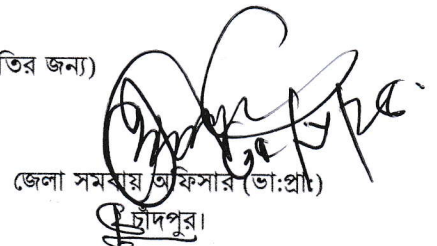 তির জন্য)
জেলা সমবায় অফিসার (ভা:প্রা:)
চাঁদপুর।